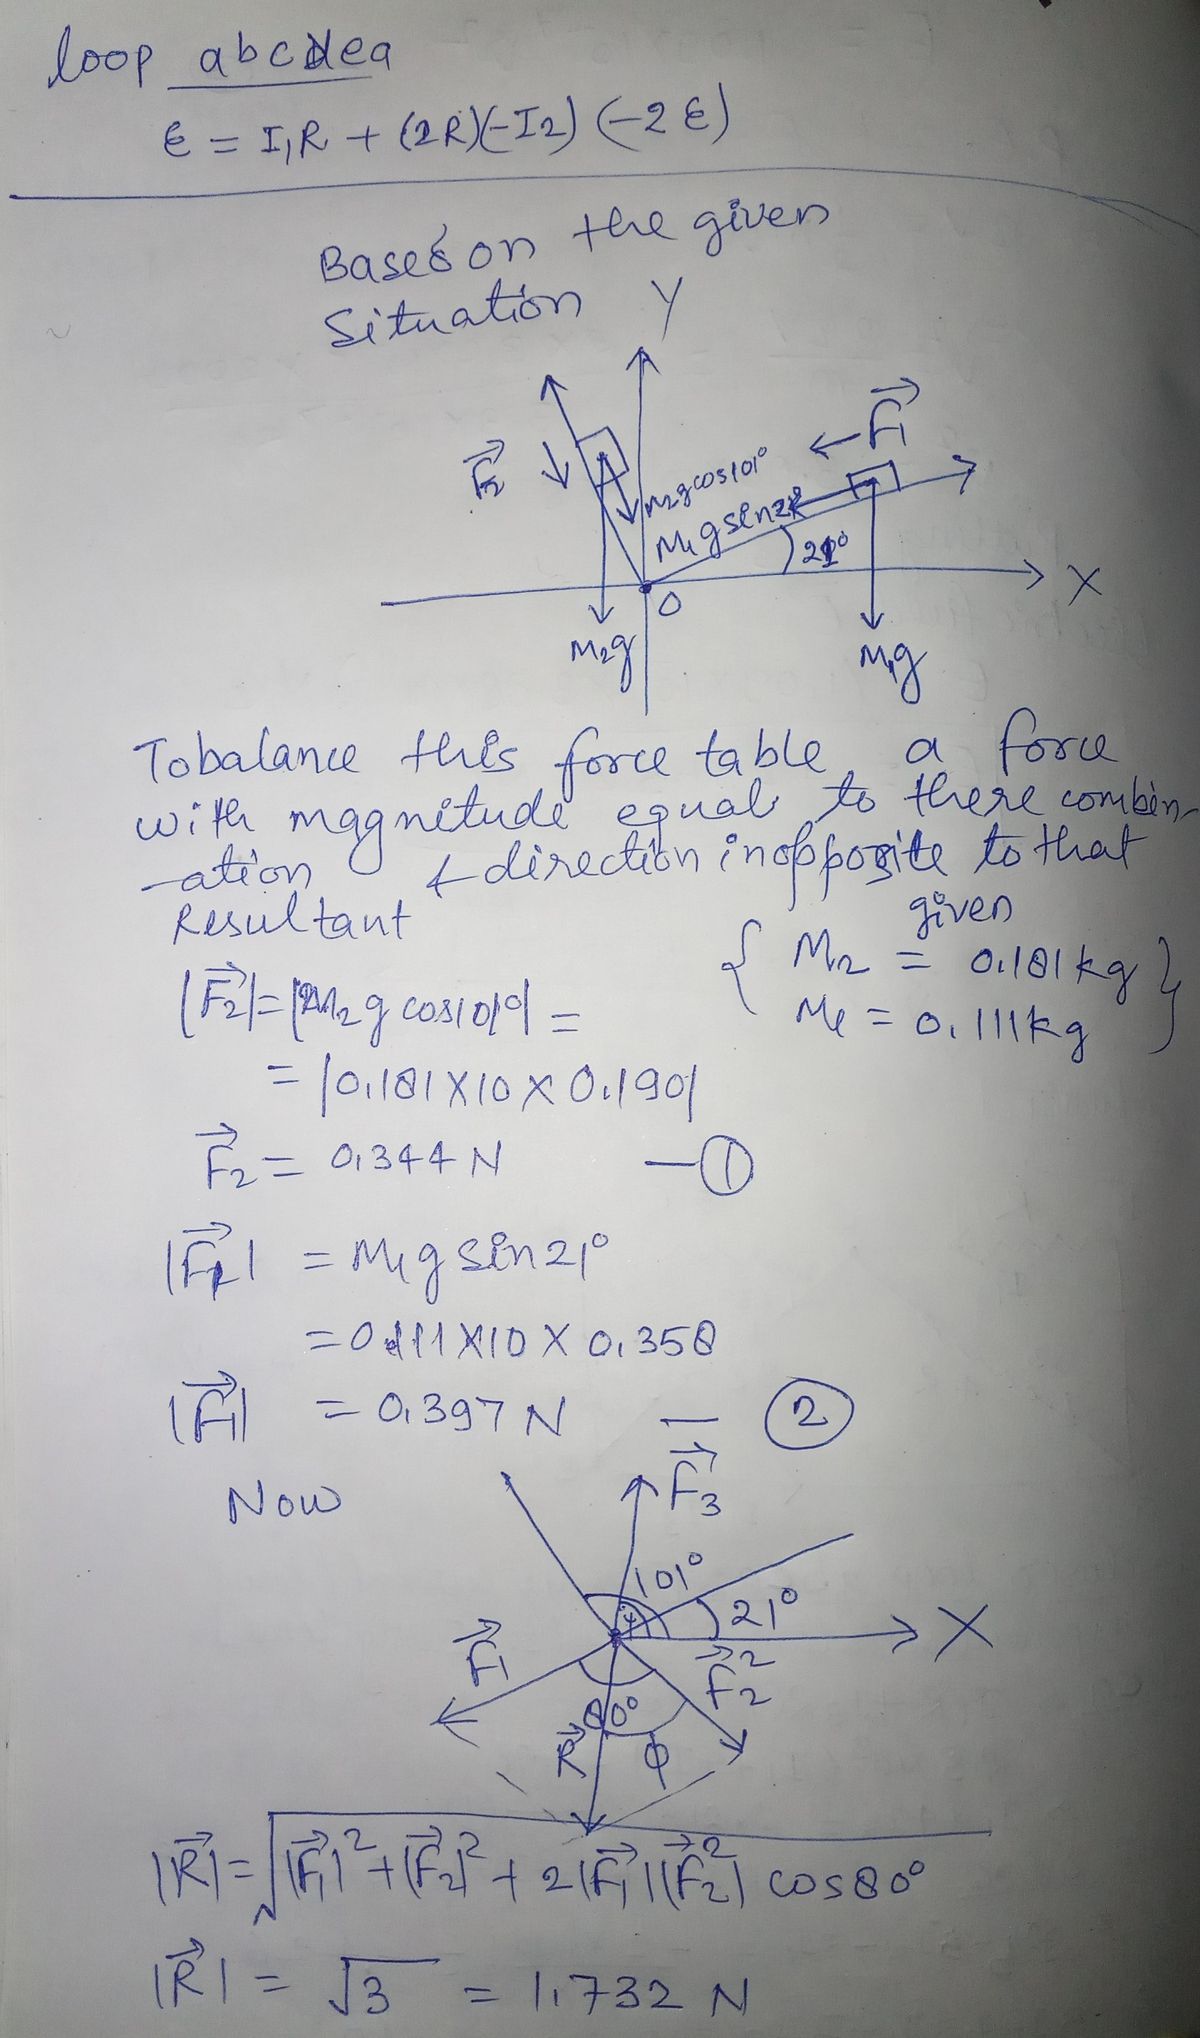 loop abcdea
ε = I₁R + (2R)(-I2) (-2ε)
Based on the given
Situation
Y
F₁
F₂
M₂gcos101°
M₁gsin21°
21°
X
O
M₂g
M₁g
Tobalance this force table a force
with magnitude equal to there combin-
-ation & direction inopposite to that
Resultant
given
{ M₂ = 0.181kg
M₁ = 0.111kg }
|F₂| = |M₂g cos101°| =
= |0.181X10X0.190|
F₂ = 0.344 N —①
|F₁| = M₁g sin21°
= 0.111X10X0.358
|F₁| = 0.397 N — ②
Now
F₃
101°
21°
X
F₁
F₂²
80°
R
φ
|R| = √|F₁|²+|F₂|²+2|F₁||F₂²| cos80°
|R| = √3 = 1.732 N